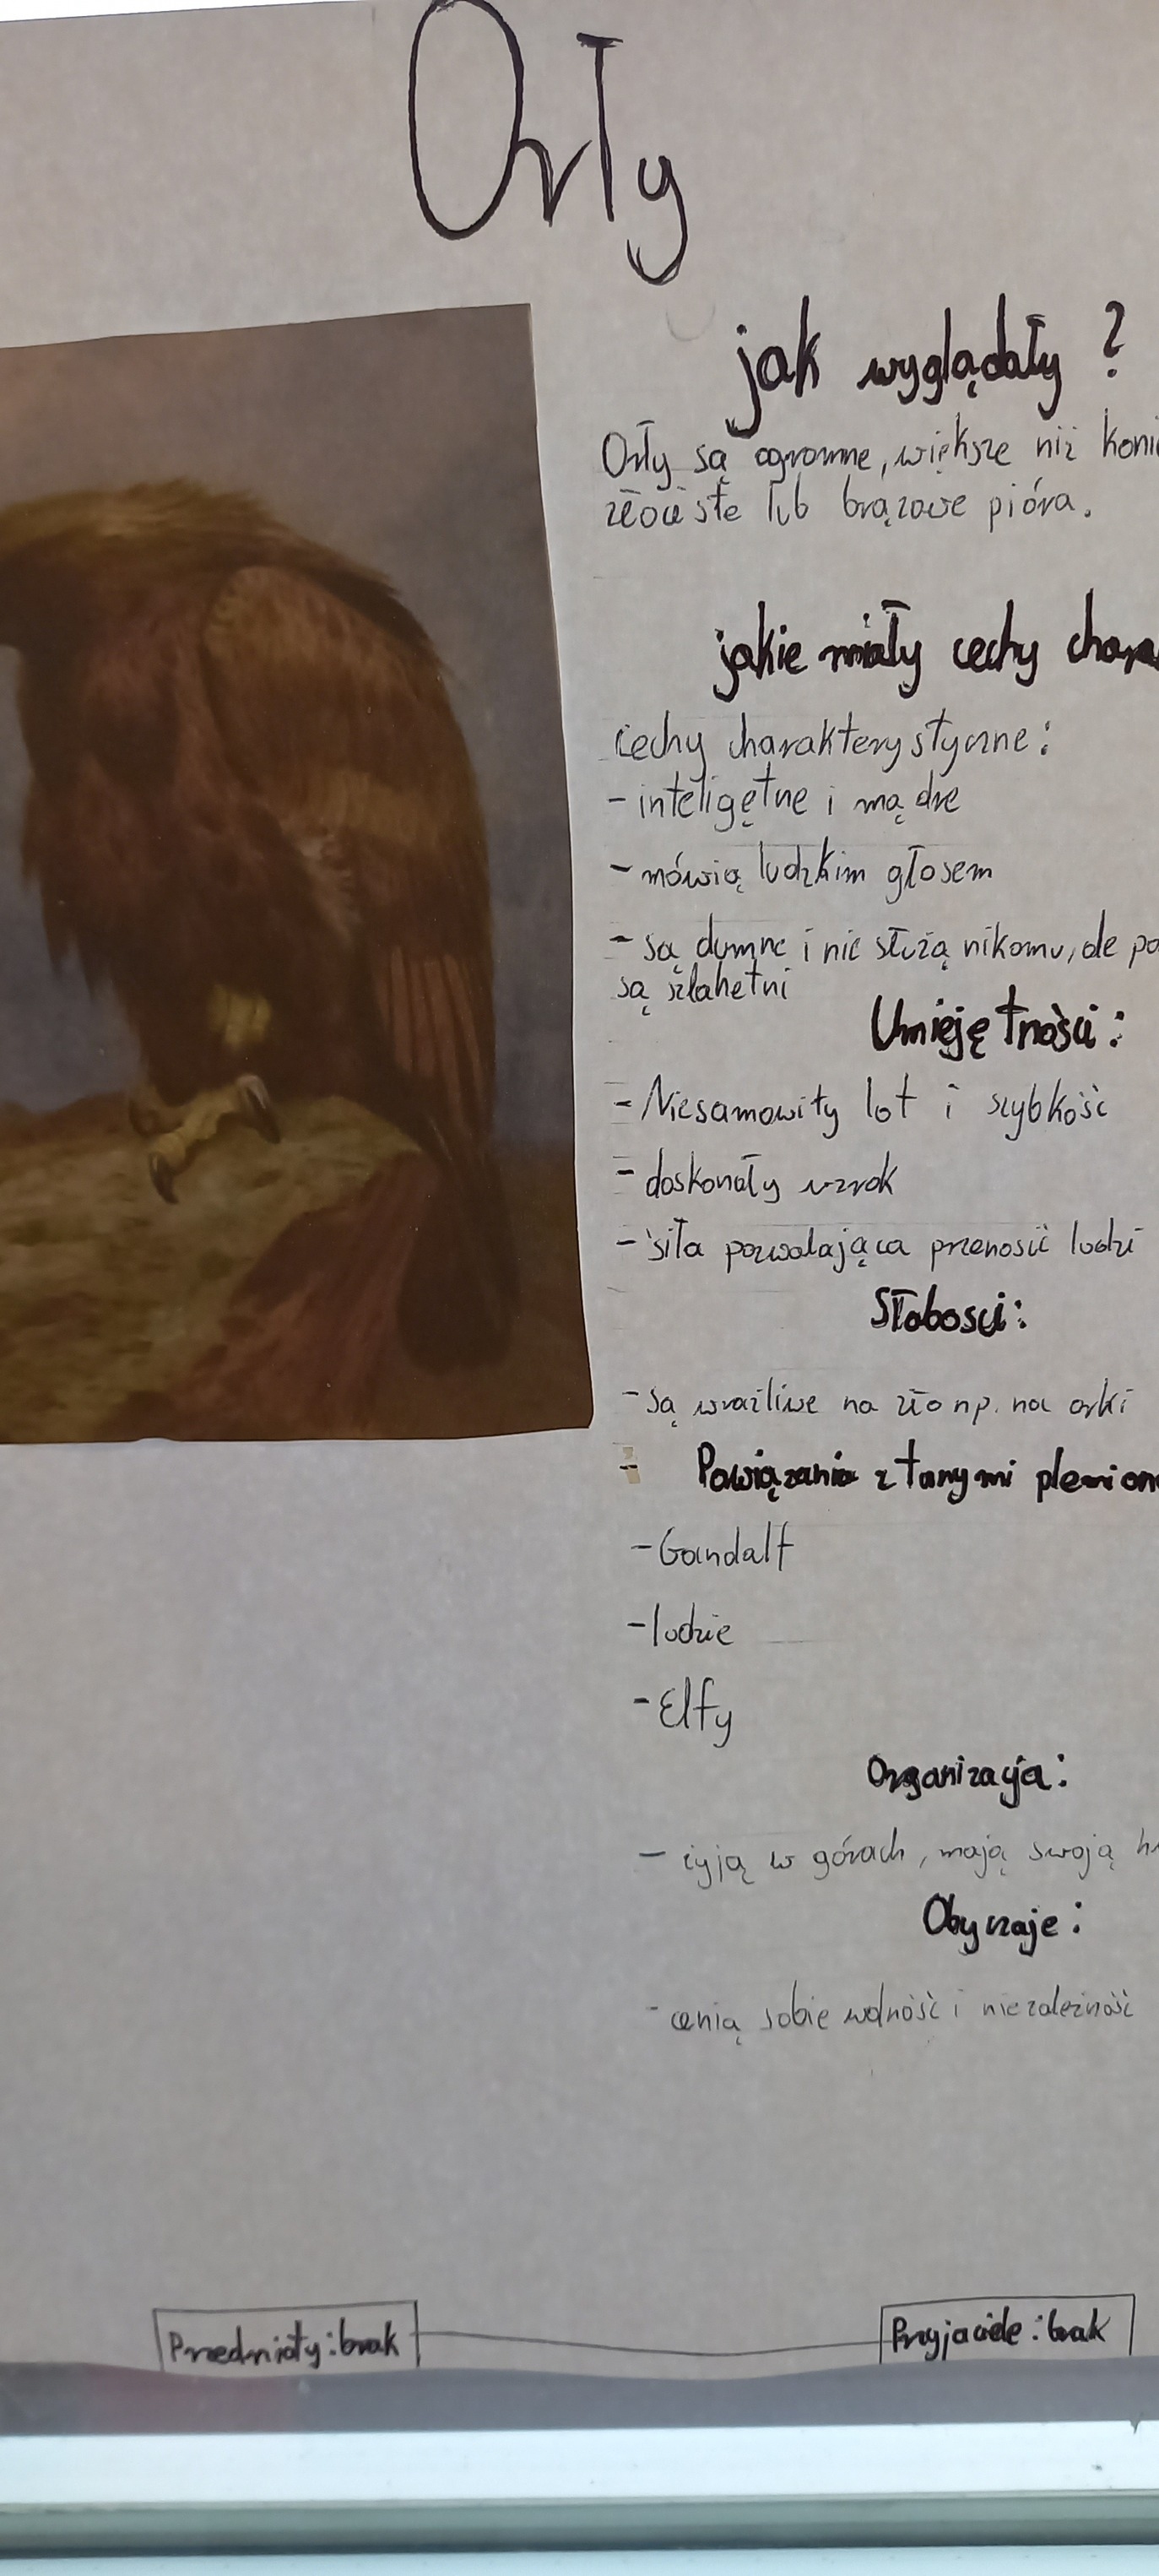 Orły
jak wyglądały ?
Orły są ogromne, większe niż koni
złociste lub brązowe pióra.
jakie miały cechy chara
cechy charakterystyczne:
- inteligętne i mądre
- mówią ludzkim głosem
- są dumne i nie służą nikomu, ale po
są szlahetni
Umiejętności:
- Niesamowity lot i szybkość
- doskonały wzrok
- siła pozwalająca przenosić ludzi
Słabosci:
- są wrażliwe na zło np. na orki
- Powiązania z plemion
- Gandalf
- ludzie
- Elfy
Organizacja:
- żyją w górach, mają swoją h
Obyczaje:
- cenią sobie wolność i niezależność
Przedmioty: brak
Przyjaciele: brak